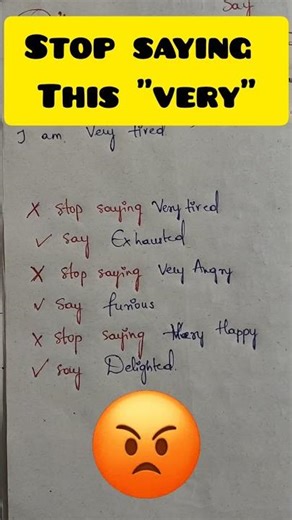 Say
STOP SAYING
THIS "VERY"
I am Very tired
✗ Stop saying Very tired
✓ Say Exhausted
✗ Stop saying Very Angry
✓ Say furious
✗ Stop saying Very Happy
✓ Say Delighted.